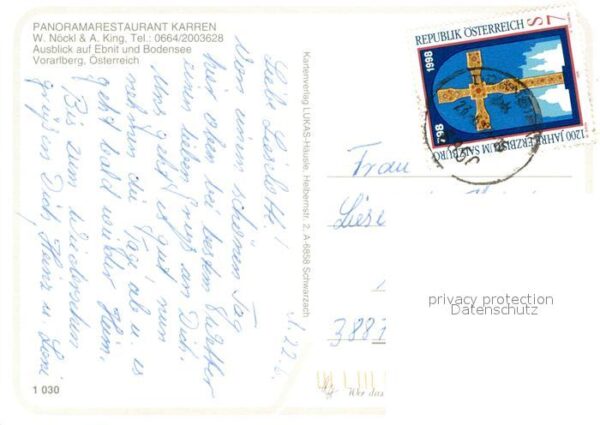 PANORAMARESTAURANT KARREN
W. Nöckl & A. King, Tel.: 0664/2003628
Ausblick auf Ebnit und Bodensee
Vorarlberg, Österreich
Von einem schönen Tag
hier oben bei bestem Wetter
einen lieben Gruß an Dich.
geht es gut nun
nehmen die Tage ab u. es
geht bald wieder Heim.
Bis zum Wiedersehen
grüßen Dich, Heinz u. Leni
1 030
Kartenverlag LUKAS-Häusle, Helbernstr. 2, A-6858 Schwarzach
REPUBLIK ÖSTERREICH
S 7
798
1998
1200 JAHRE ERZBISTUM SALZBURG
Frau
Liese
388
privacy protection
Datenschutz